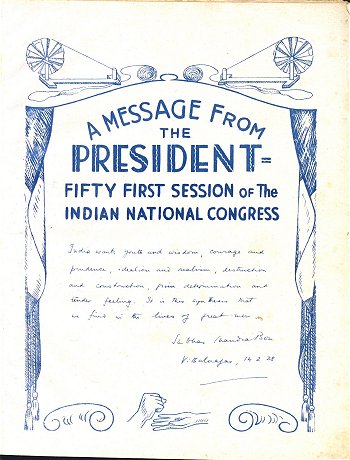 A MESSAGE FROM
THE
PRESIDENT=
FIFTY FIRST SESSION OF The
INDIAN NATIONAL CONGRESS
India wants youth and wisdom, courage and
prudence, idealism and realism, destruction
and construction, grim determination and
tender feeling. It is this synthesis that
we find in the lives of great men.
Subhas Chandra Bose
14 2 38